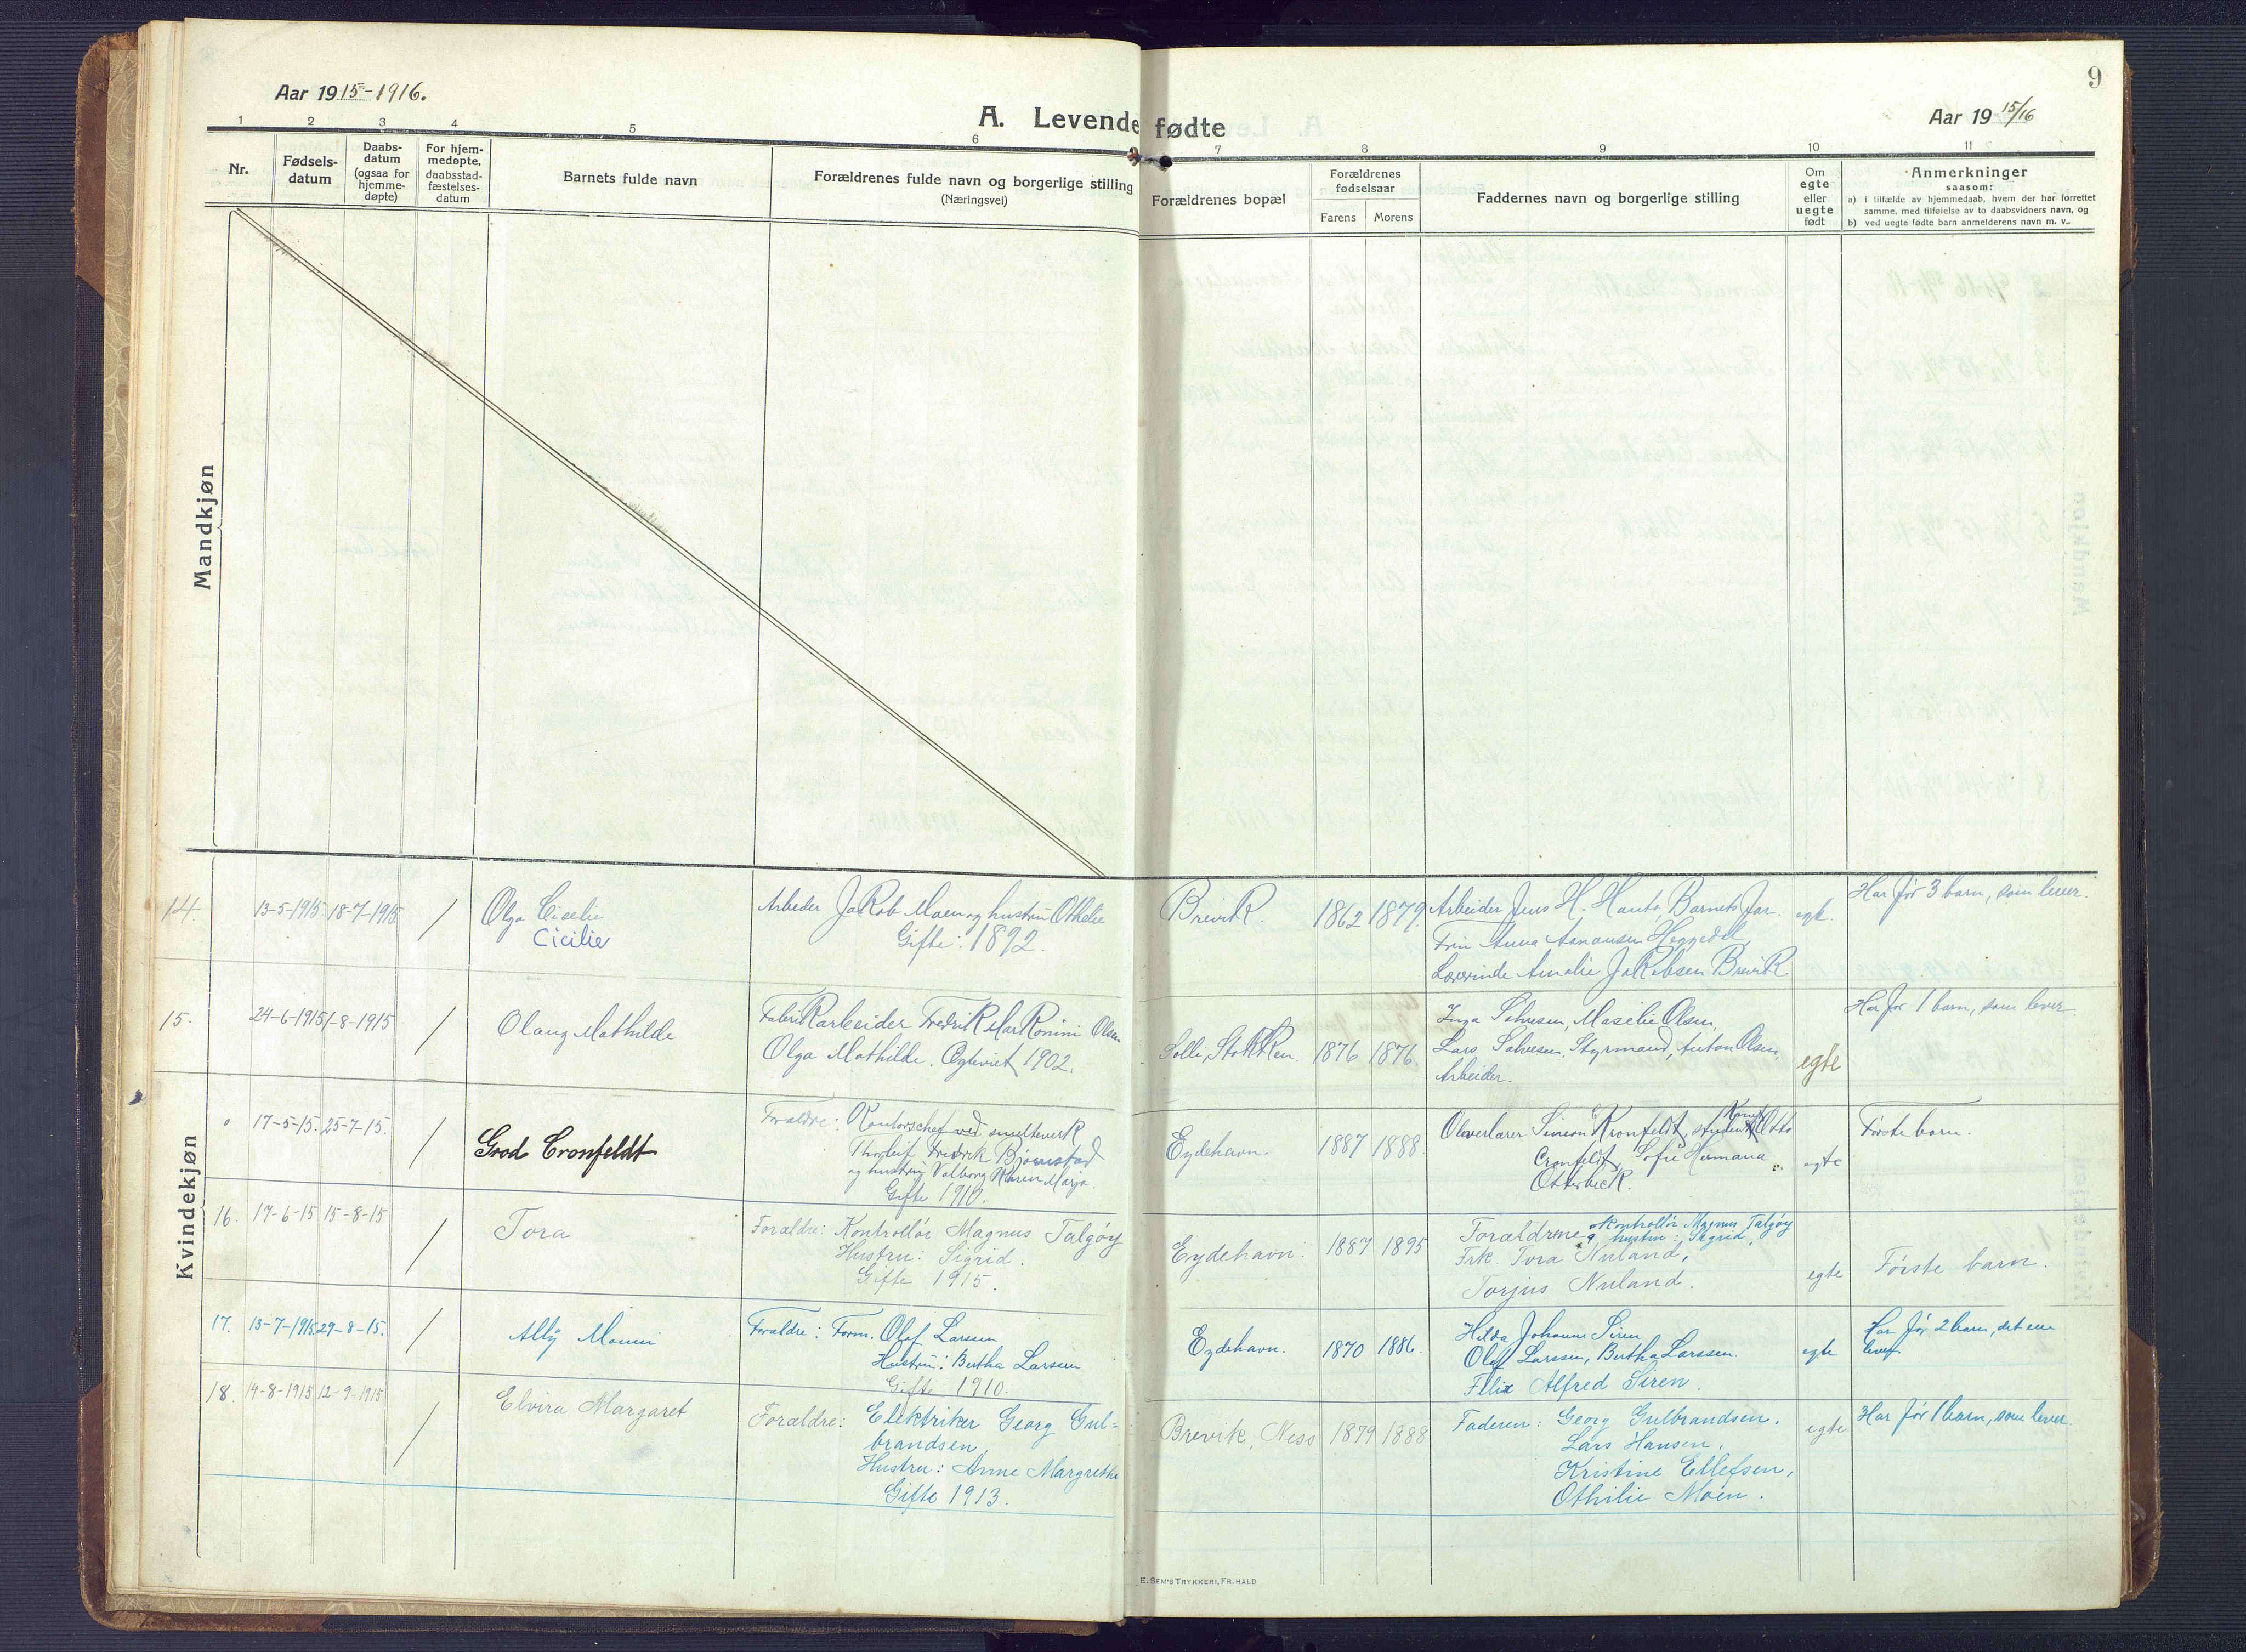 9
Aar 1915-1916.
Aar 19 15/16
A. Levende fødte
1 2 3 4 5 6 7 8 9 10 11
Nr.
Fødsels-
datum
Daabs-
datum
(ogsaa for
hjemme-
døpte)
For hjem-
medøpte,
daabsstad-
fæstelses-
datum
Barnets fulde navn
Forældrenes fulde navn og borgerlige stilling
(Næringsvei)
Forældrenes bopæl
Forældrenes
fødselsaar
Farens Morens
Faddernes navn og borgerlige stilling
Om
egte
eller
uegte
født
Anmerkninger
saasom:
a) I tilfælde av hjemmedaab, hvem der har forrettet
samme, med tilføielse av to daabsvidners navn, og
b) ved uegte fødte barn anmelderens navn m. v..
Mandkjøn
Kvindekjøn
14. 13-5-1915 18-7-1915 /
Olga Ciselie
Cicilie
Arbeder Jakob Moen og hustru Othelie
Gifte: 1892.
Brevik. 1862 1879.
Arbeider Jens H. Hauto, Barnets far.
Anna Aanonsen Heggedal,
Amalie Jakobsen Brevik
egt.
Har før 3 barn, som lever.
15. 24-6-1915 1-8-1915 /
Olaug Mathilde
Fabrikarbeider Fredrik Olsen
Olga Mathilde. Egteviet 1902.
Solli, Stokken. 1876 1876.
Inga Salvesen, Maselie Olsen,
Lars Salvesen, Styrmand, Anton Olsen,
Arbeider.
egte
Har før 1 barn, som lever.
0 17-5-15. 25-7-15. /
Grod Cronfeldt
Forældre: Kontorschef ved smelteverk
Thorleif Fredrik Bjørnstad
og hustru Valborg Karen Marja.
Gifte 1910.
Eydehavn. 1887 1888
Overlærer Simon Kronfeldt, student Otto
Cronfeldt, Sofie Hermana
Otterbeck.
egte
Første barn.
16. 17-6-15 15-8-15 /
Tora
Forældre: Kontrollør Magnus Talgøy
Hustru: Sigrid.
Gifte 1915.
Eydehavn. 1887 1895
Forældrene Kontrollør Magnus Talgøy
hustru: Sigrid,
Frk Tora Nuland,
Torjus Nuland.
egte
Første barn.
17. 13-7-1915 29-8-15. /
Alby
Forældre: Form. Olof Larssen
Hustru: Bertha Larssen
Gifte 1910.
Eydehavn. 1870 1886.
Hilda Johanne Siren
Olof Larssen, Bertha Larssen.
Felix Alfred Siren.
egte
Har før 2 barn, det ene
lever.
18. 14-8-1915 12-9-1915 /
Elvira Margaret
Forældre: Elektriker Georg Gul=
brandsen,
Hustru: Anne Margrethe
Gifte 1913.
Brevik, Ness 1879 1888
Faderen: Georg Gulbrandsen.
Lars Hansen,
Kristine Ellefsen,
Othilie Moen.
egte
Har før 1 barn, som lever.
E. Sem's Trykkeri, Fr.hald